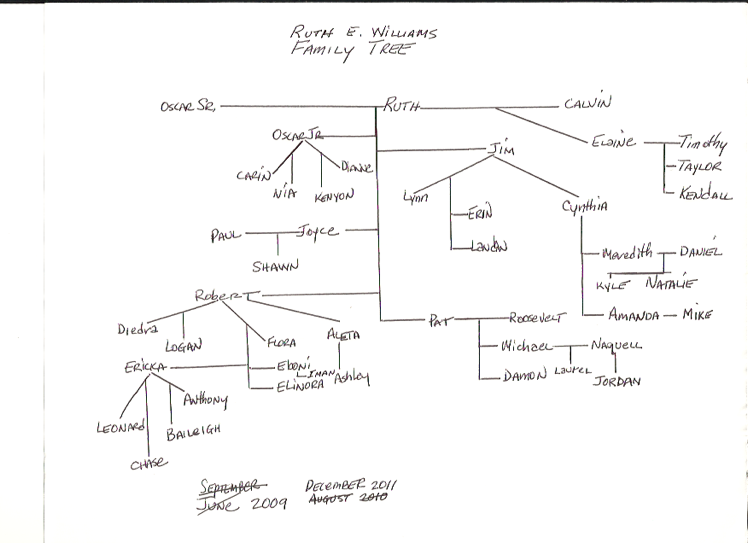 RUTH E. WILLIAMS
FAMILY TREE
OSCAR SR. RUTH CALVIN
OSCAR JR. JIM ELAINE Timothy
TAYLOR
KENDALL
CARIN NIA KENYON DIANNE
Lynn ERIN
LANDON
Cynthia
PAUL Joyce
SHAWN
Meredith DANIEL
KYLE NATALIE
AMANDA MIKE
ROBERT
Diedra LOGAN FLORA ALETA
PAT ROOSEVELT
Michael NAQUELL
DAMON LAUREL JORDAN
ERICKA EBONI
LIMAN
ELINORA Ashley
LEONARD CHASE BAILEIGH ANTHONY
SEPTEMBER DECEMBER 2011
JUNE 2009 AUGUST 2010